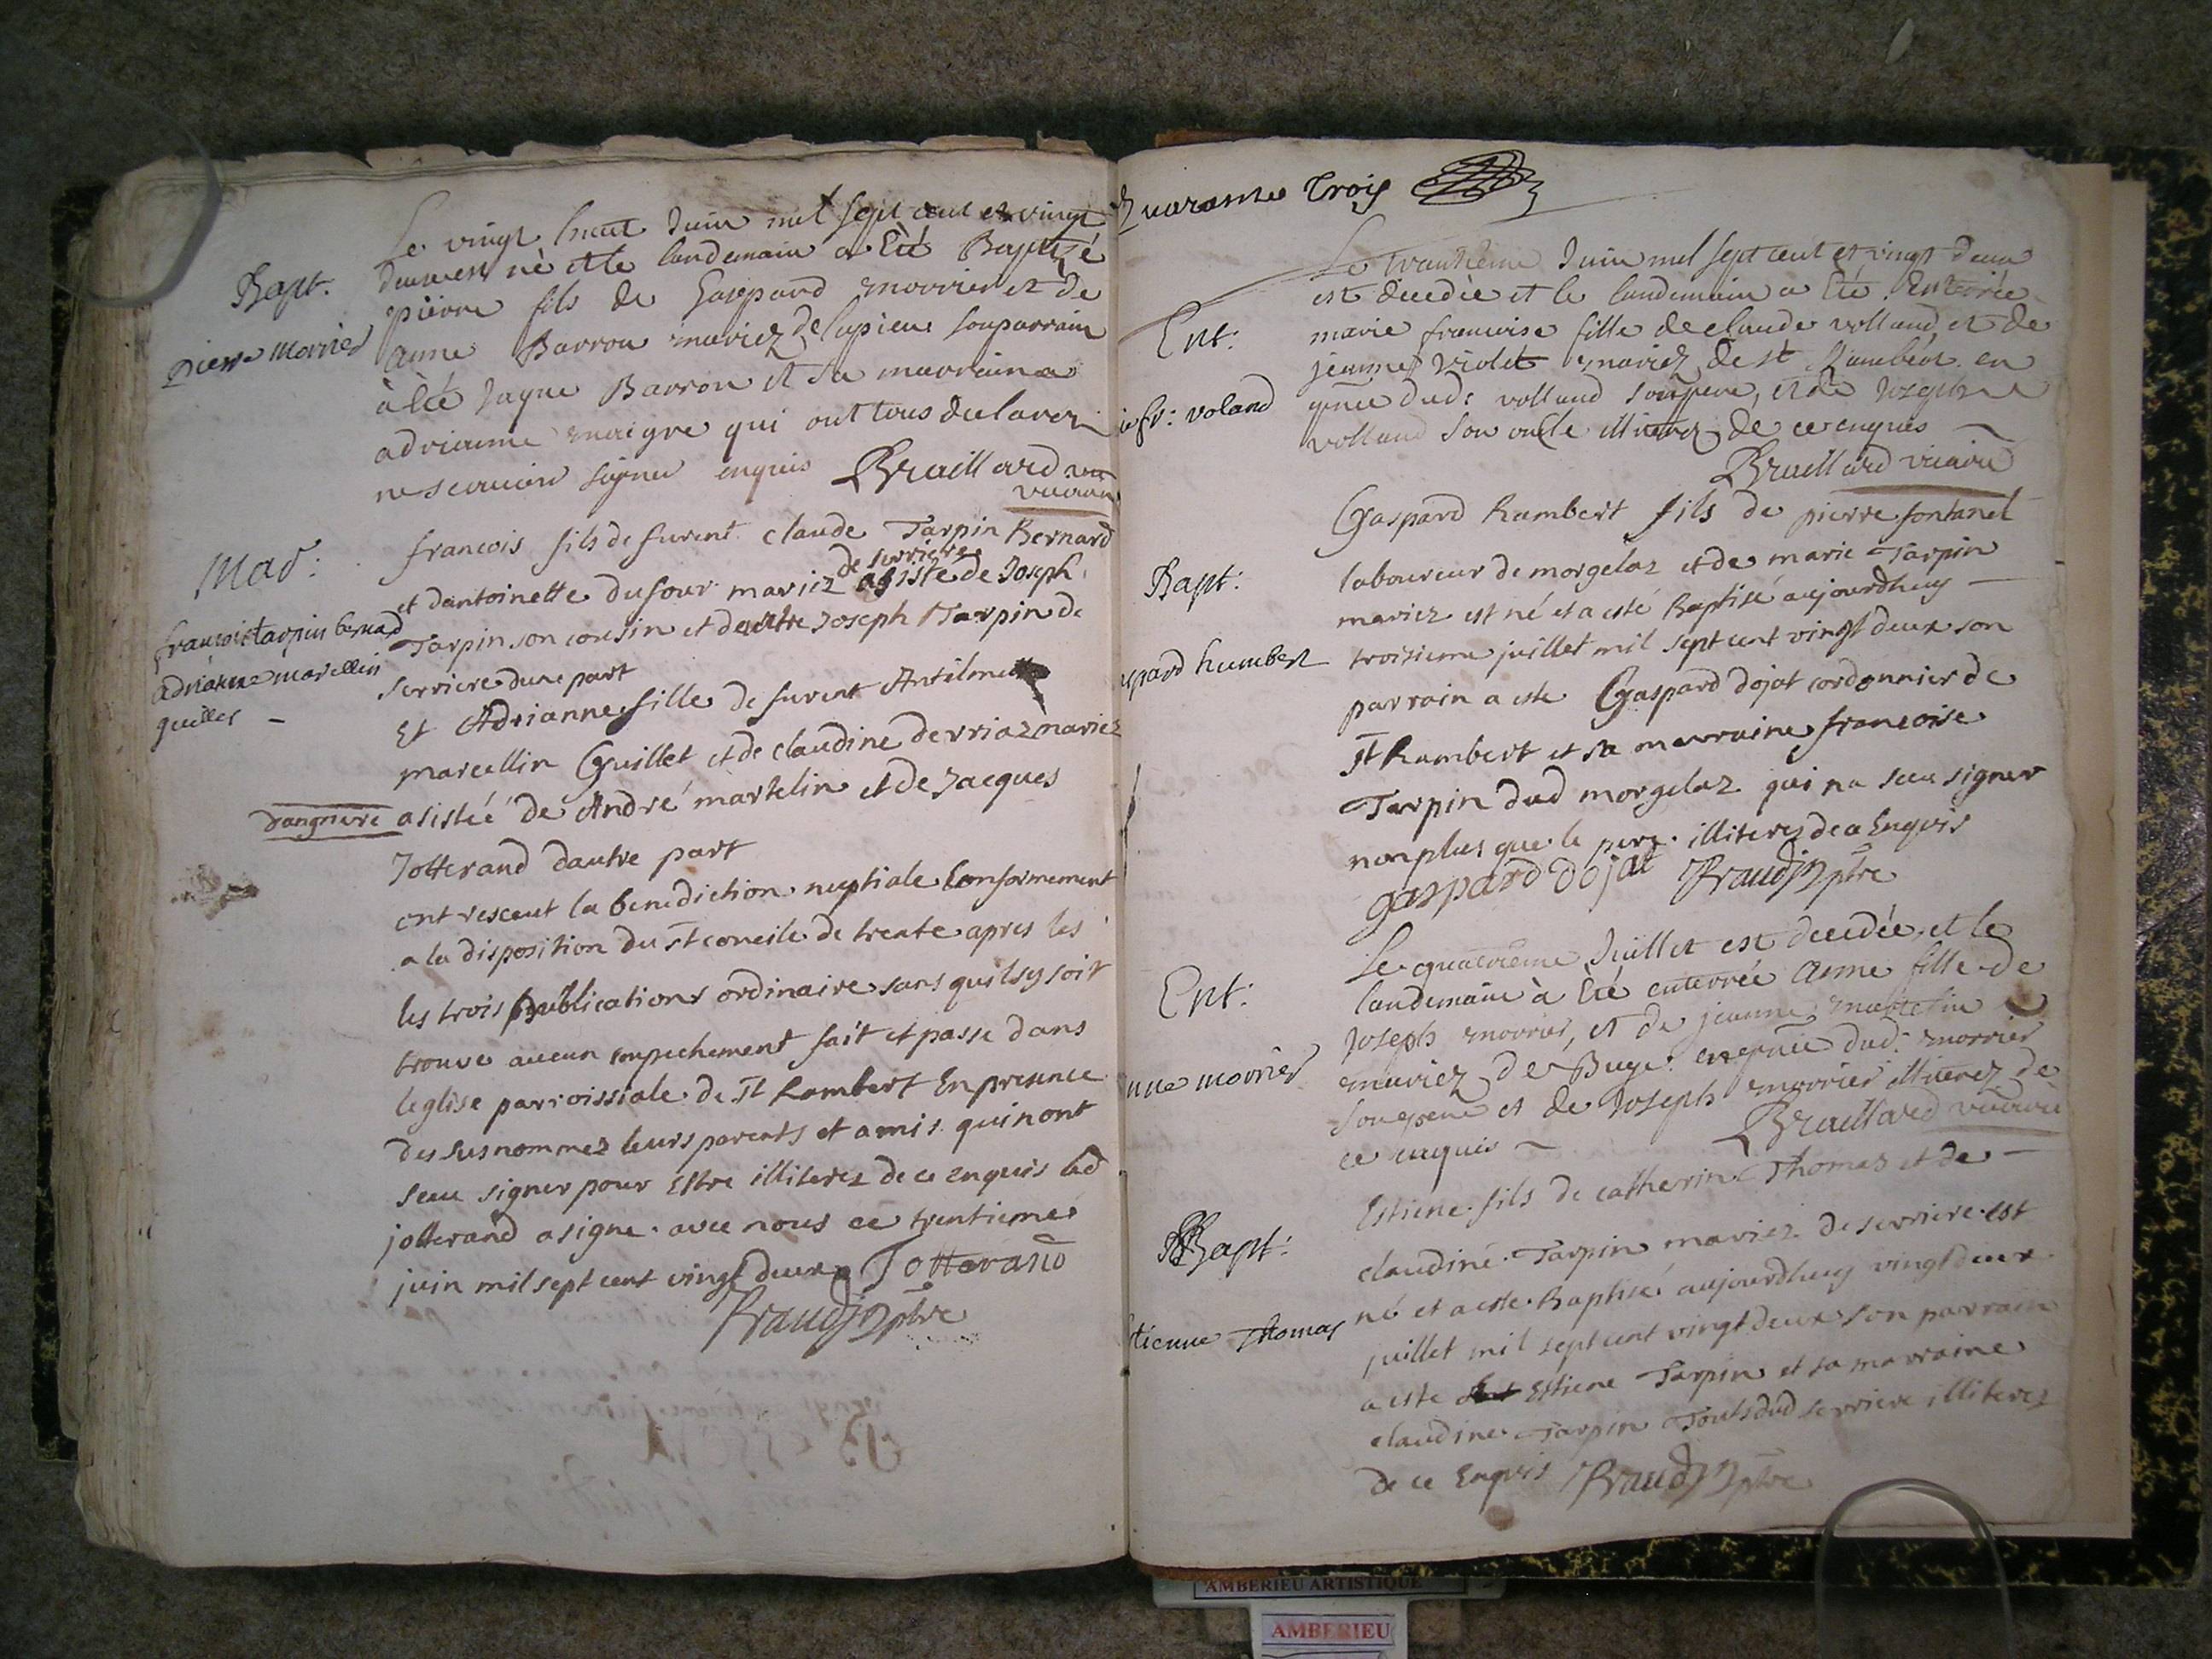 Bapt.
pierre Morrier
Le vingt huit Juin mil sept cent et vingt
deux est né et le landemain a Eté Baptizé
pierre fils de Gaspard morrier et de
anne Barron mariez de lupieu Son parrain
à Eté Jaque Barron et Sa marraine
adrianne maigre qui ont tous declarez
ne scavoir signer enquis Braillard
vicaire
Mar:
francois tarpin bernard
adrianne marcellin
guillet -
francois fils de furent claude Tarpin Bernard
de serriere
et dantoinette dufour mariez asisté de Joseph
Tarpin son cousin et dautre Joseph Tarpin de
serriere dune part
Et Adrianne fille de furent Antilme
marcellin Guillet et de claudine derriaz mariez
dangriere asistéé de André martelin et de Jacques
Jotterand dautre part
ont resceut la benediction nuptiale Conformement
a la disposition du st concile de trente apres les
les trois publications ordinaire sans quil sy soit
trouve aucun empechement fait et passe dans
leglise parroissiale de St Rambert En presence
des susnommez leurs parents et amis qui nont
sceu signer pour Estre illiterez de ce enquis led
jotterand a signe avec nous ce trentieme
juin mil sept cent vingt deux Jotterand
Braudj ptre
Quarante Trois
Ent:
fr: voland
Le trantieme Juin mil sept cent et vingt deux
est decedée et le landemain a Eté Enterrée
marie francoise fille de claude volland et de
jeanne violet mariez de st Rambert en
pñce dud: volland son pere, et de Joseph
volland Son oncle illiterez de ce enquis
Braillard vicaire
Bapt:
spard humbert
Gaspard humbert fils de pierre fontanel
laboureur de morgelaz et de marie Tarpin
mariez est né et a esté Baptisé aujourdhuy
troisieme juillet mil sept cent vingt deux son
parrain a este Gaspard dojat cordonnier de
St Rambert et sa marraine francoise
Tarpin dud morgelaz qui na sceu signer
non plus que le pere illiterez de ce Enquis
gaspard dojat Braudj ptre
Ent:
nne morrier
Le quatrieme Juillet est decedée et le
landemain à Eté enterrée Anne fille de
Joseph morrier, et de jeanne martelin
mariez de Buge: en pñce dud: morrier
Son pere et de Joseph morrier illiterez de
ce enquis Braillard vicaire
Bapt:
tienne Thomas
Estiene fils de catherin Thomas et de
claudine Tarpin mariez de serriere est
né et a este Baptisé aujourdhuy vingt deux
juillet mil sept cent vingt deux son parrain
a este Estiene Tarpin et sa marraine
claudine Tarpin Touts dud serriere illiterez
de ce Enquis Braudj ptre
AMBERIEU ARTISTIQUE
AMBERIEU